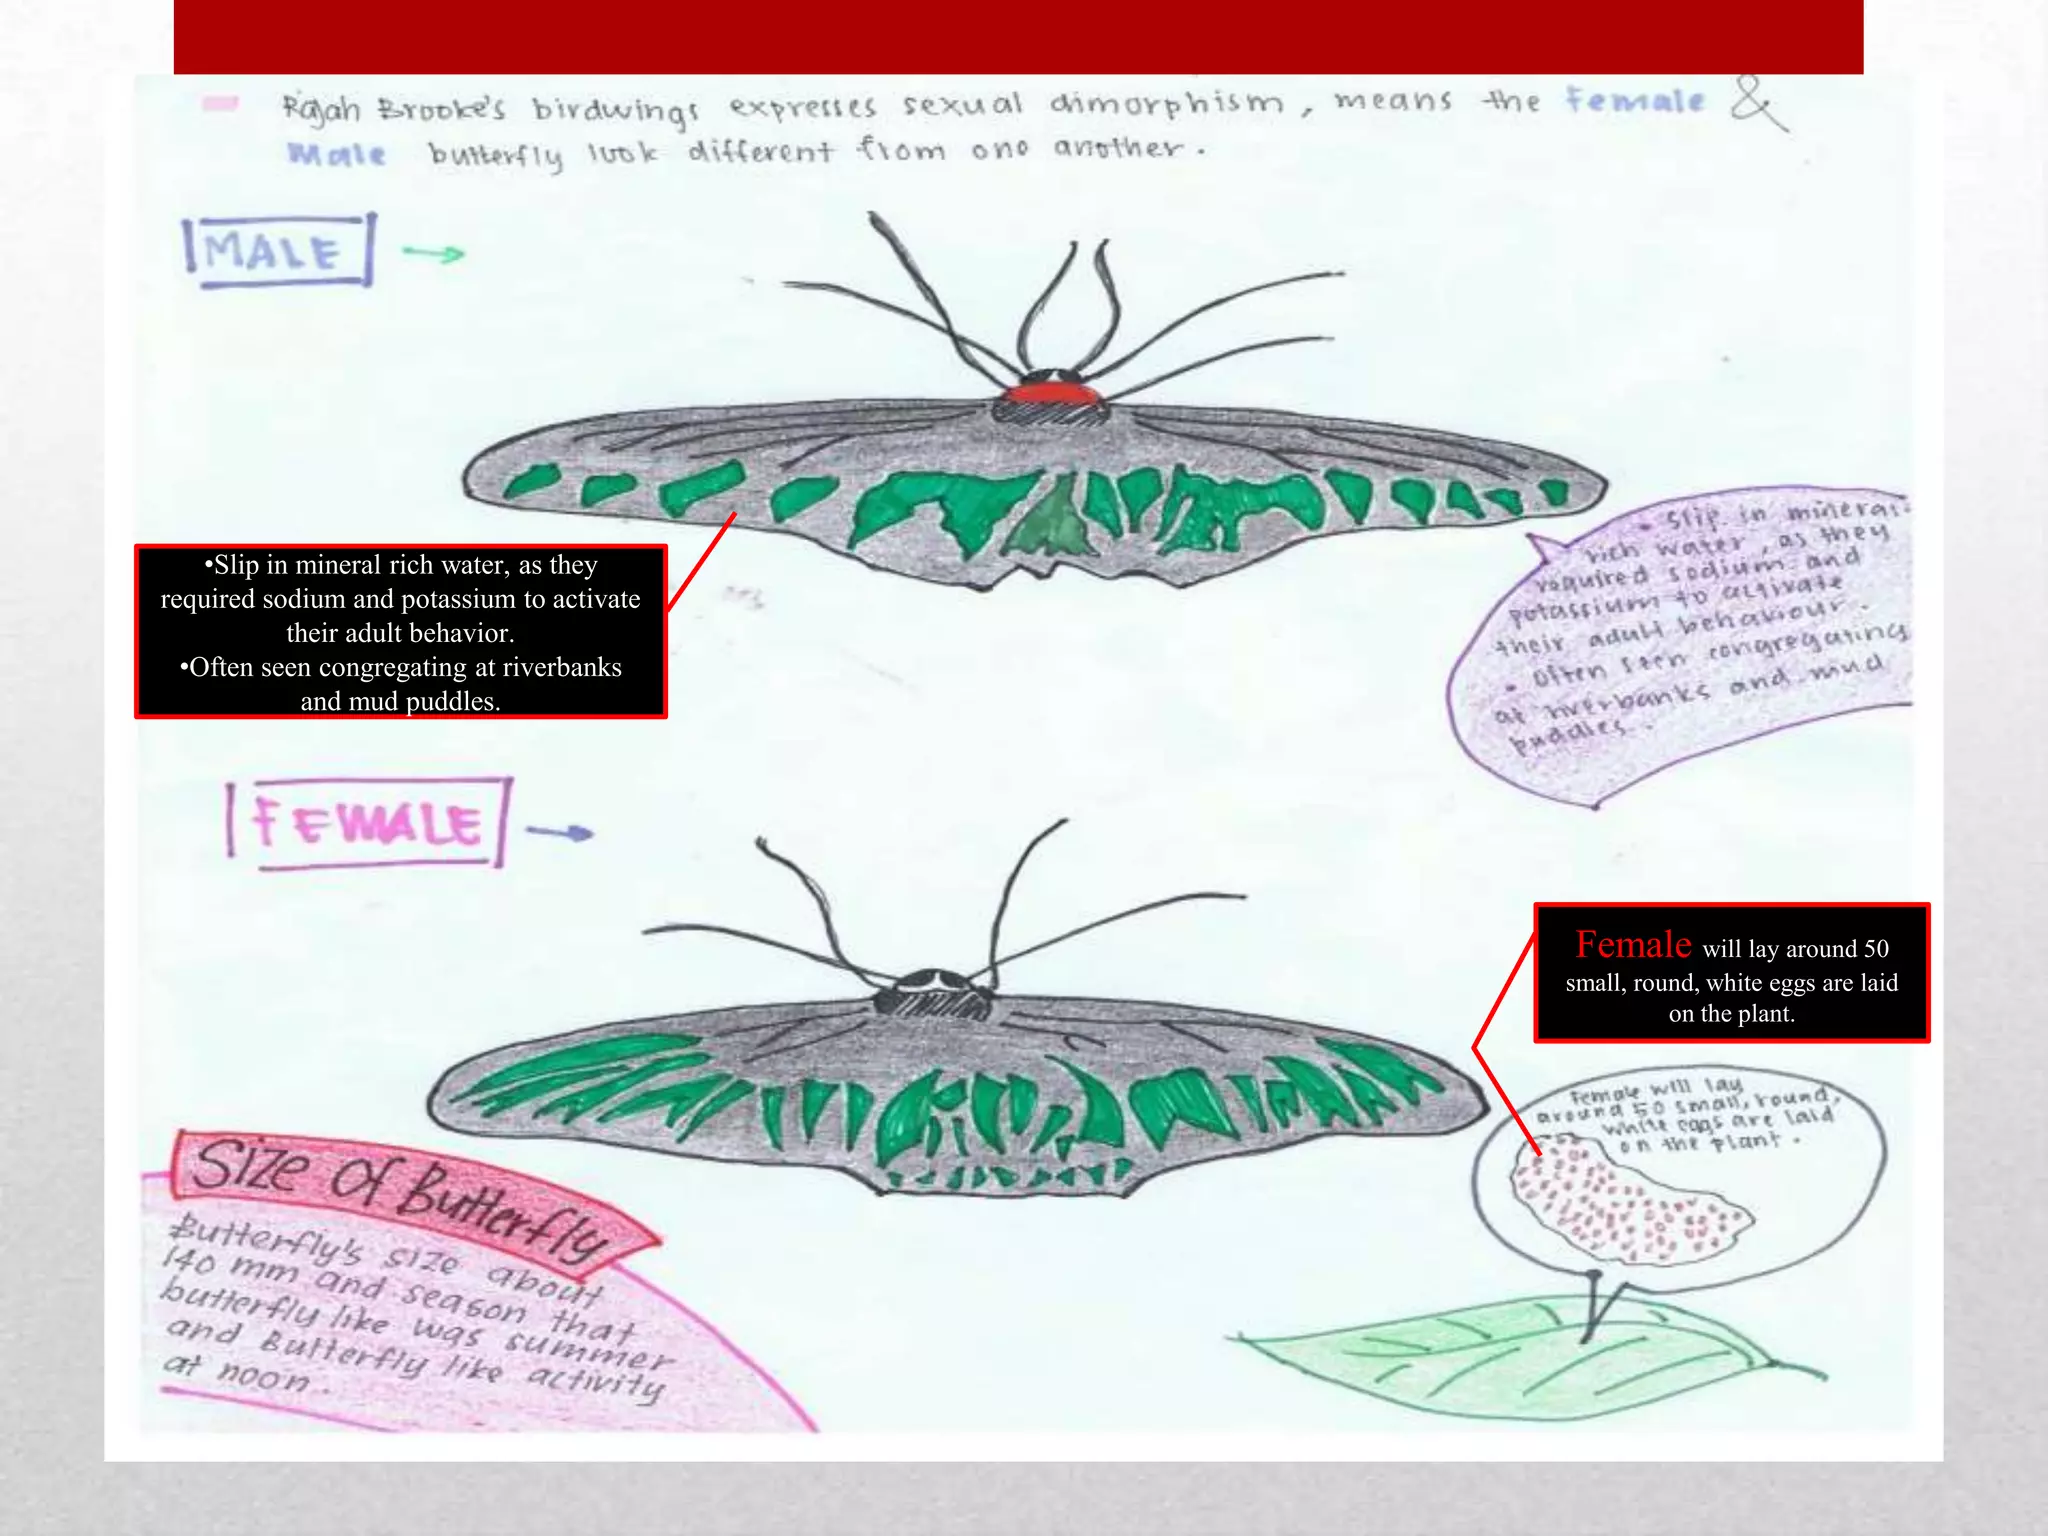 Rajah Brooke's birdwings expresses sexual dimorphism, means the Female &
Male butterfly look different from one another.
MALE
•Slip in mineral rich water, as they
required sodium and potassium to activate
their adult behavior.
•Often seen congregating at riverbanks
and mud puddles.
• Slip in mineral
rich water, as they
required sodium and
potassium to activate
their adult behaviour.
• Often seen congregating
at riverbanks and mud
puddles.
FEMALE
Female will lay around 50
small, round, white eggs are laid
on the plant.
Female will lay
around 50 small, round,
white eggs are laid
on the plant.
Size of Butterfly
Butterfly's size about
140 mm and season that
butterfly like was summer
and Butterfly like activity
at noon.